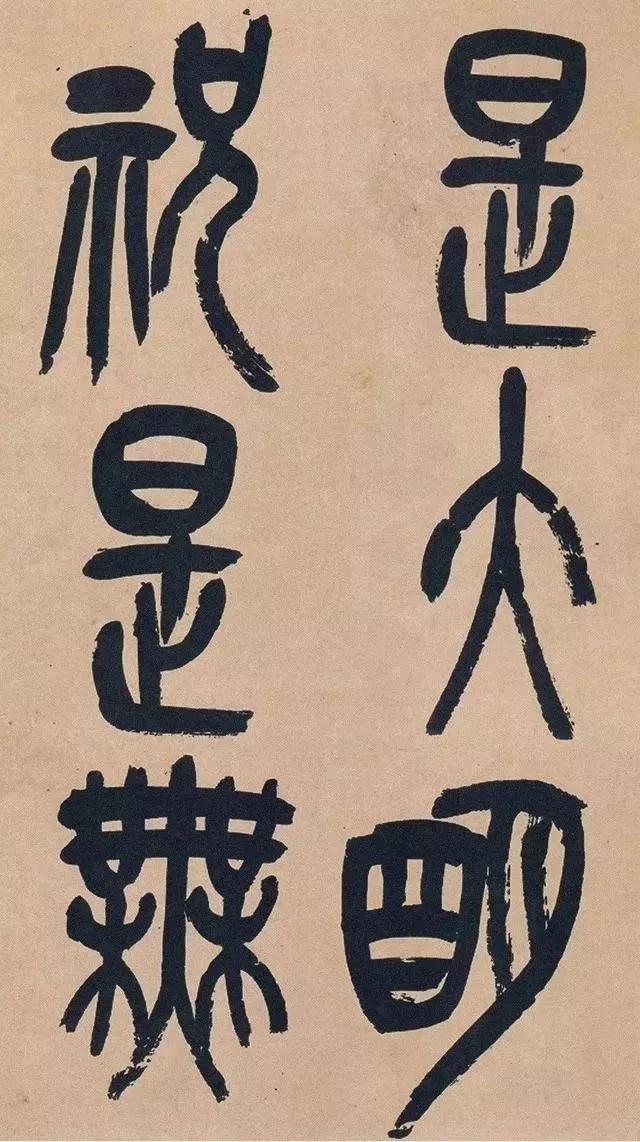 是大明
祝是無